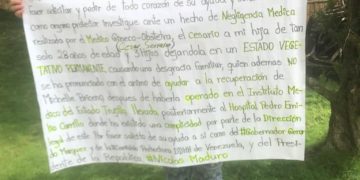 favor solicitar y pedir de todo corazón de su ayuda y
como órgano rector investigue ante un hecho de Negligencia Medica
realizado por el Medico Gineco-Obstetra, el Cesario a mi hija de tan
(Cesar Serrano)
solo 28 años de edad y dejandola en un ESTADO VEGE-
TATIVO PERMANENTE, causando una desgracia familiar, quien ademas NO
se ha pronunciado con el animo de ayudar a la recuperación de
Michelle Briceño, despues de haberla operado en el Instituto Me-
dico del Estado Trujillo, llevada posteriormente al Hospital Pedro Emi-
lio Carrillo donde ha existido una complicidad por parte de la Dirección
legal de este. Por favor solicito de su ayuda a si como del #Gobernador Gerar
do Marquez y de la Vicepresidenta de Venezuela, y del Presi-
dente de la República #Nicolas Maduro